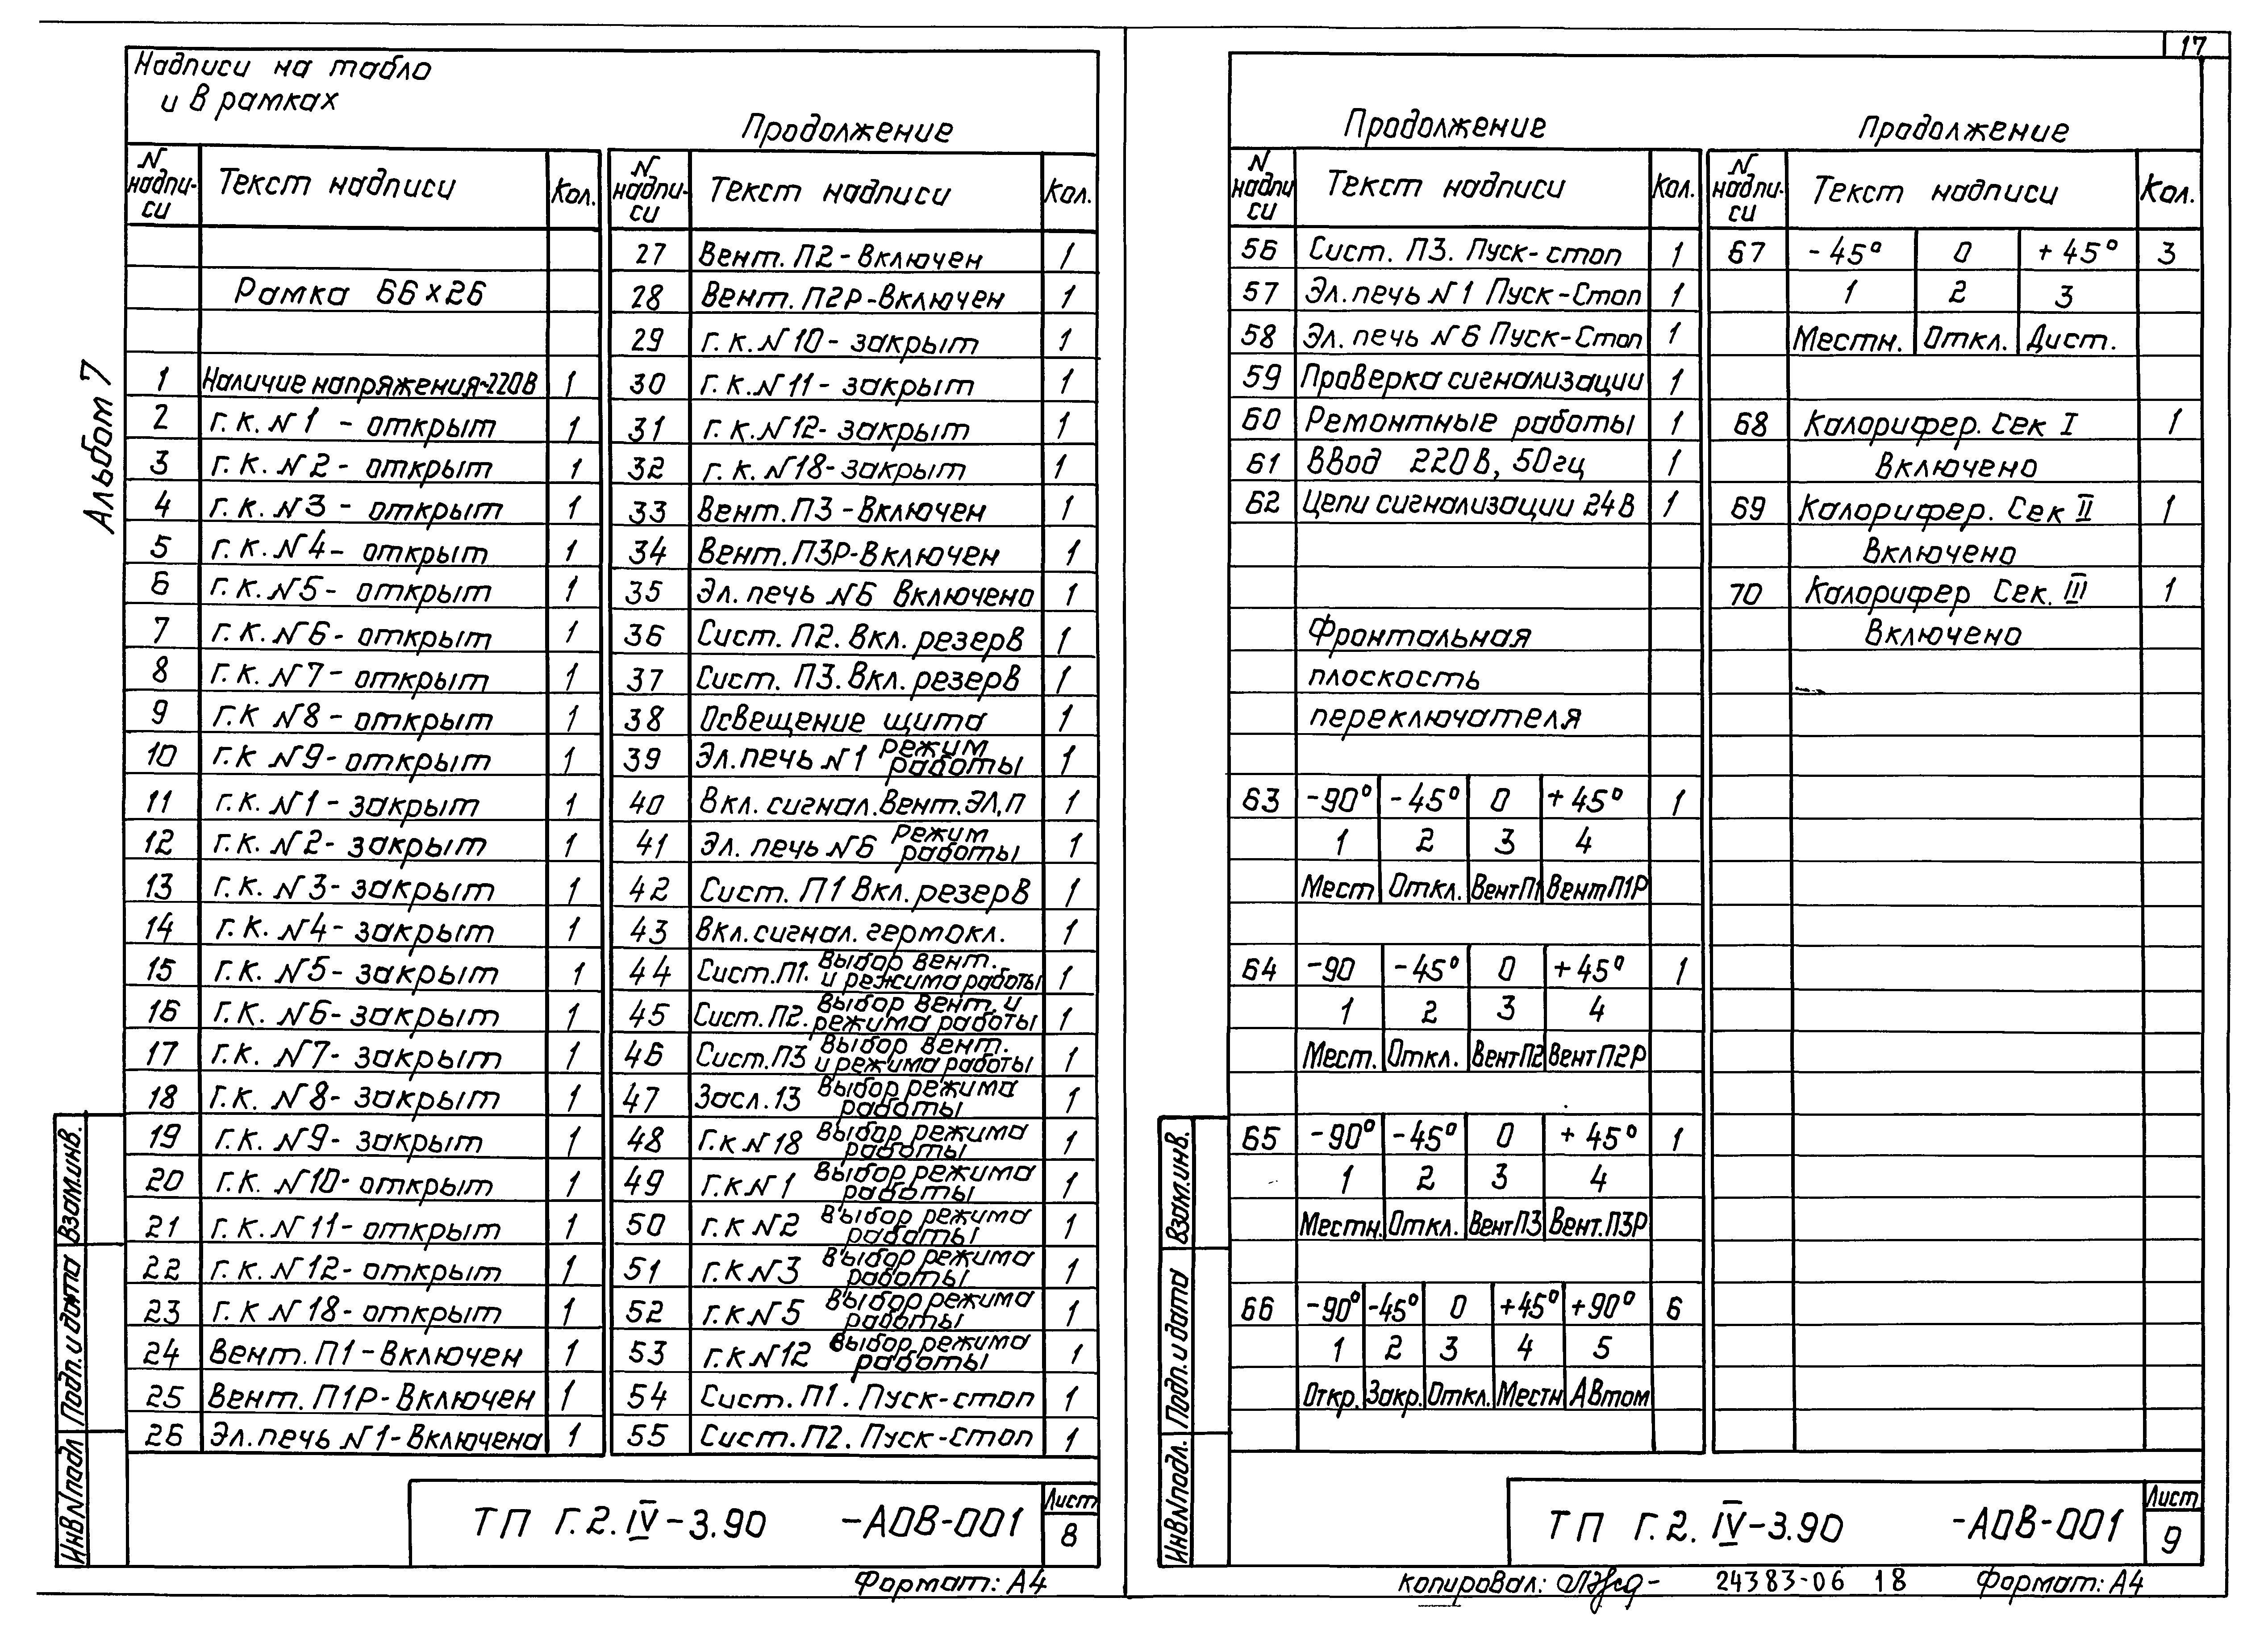 Надписи на табло
и в рамках
Продолжение
N надпи-си | Текст надписи | Кол.
Рамка 66×26
1 Наличие напряжения~220В 1
2 Г.К. N1 - открыт 1
3 Г.К. N2 - открыт 1
4 Г.К. N3 - открыт 1
5 Г.К. N4 - открыт 1
6 Г.К. N5 - открыт 1
7 Г.К. N6 - открыт 1
8 Г.К. N7 - открыт 1
9 Г.К N8 - открыт 1
10 Г.К N9 - открыт 1
11 Г.К. N1 - закрыт 1
12 Г.К. N2 - закрыт 1
13 Г.К. N3 - закрыт 1
14 Г.К. N4 - закрыт 1
15 Г.К. N5 - закрыт 1
16 Г.К. N6 - закрыт 1
17 Г.К. N7 - закрыт 1
18 Г.К. N8 - закрыт 1
19 Г.К. N9 - закрыт 1
20 Г.К. N10 - открыт 1
21 Г.К. N11 - открыт 1
22 Г.К. N12 - открыт 1
23 Г.К N18 - открыт 1
24 Вент. П1 - Включен 1
25 Вент. П1Р - Включен 1
26 Эл.печь N1 - Включена 1
N надпи-си | Текст надписи | Кол.
27 Вент. П2 - Включен 1
28 Вент. П2Р - Включен 1
29 Г.К. N10 - закрыт 1
30 Г.К. N11 - закрыт 1
31 Г.К. N12 - закрыт 1
32 Г.К. N18 - закрыт 1
33 Вент. П3 - Включен 1
34 Вент. П3Р - Включен 1
35 Эл. печь N6 Включено 1
36 Сист. П2. Вкл. резерв 1
37 Сист. П3. Вкл. резерв 1
38 Освещение щита 1
39 Эл.печь N1 режим работы 1
40 Вкл. сигнал. Вент. ЭЛ,П 1
41 Эл. печь N6 Режим работы 1
42 Сист. П1 Вкл. резерв 1
43 Вкл. сигнал. гермокл. 1
44 Сист.П1. Выбор вент. и режима работы 1
45 Сист.П2. Выбор вент. и режима работы 1
46 Сист.П3 Выбор вент. и режима работы 1
47 Засл.13 Выбор режима работы 1
48 Г.К N18 Выбор режима работы 1
49 Г.К N1 Выбор режима работы 1
50 Г.К N2 Выбор режима работы 1
51 Г.К N3 Выбор режима работы 1
52 Г.К N5 Выбор режима работы 1
53 Г.К N12 Выбор режима работы 1
54 Сист. П1. Пуск-стоп 1
55 Сист. П2. Пуск-стоп 1
Альбом 7
Взам.инв.
Подп. и дата
Инв N подл
ТП Г.2. IV-3.90 -АОВ-001
Лист
8
Формат: А4
17
Продолжение
N надпи си | Текст надписи | Кол.
56 Сист. П3. Пуск-стоп 1
57 Эл. печь N1 Пуск-Стоп 1
58 Эл. печь N6 Пуск-Стоп 1
59 Проверка сигнализации 1
60 Ремонтные работы 1
61 Ввод 220В, 50гц 1
62 Цепи сигнализации 24В 1
Фронтальная
плоскость
переключателя
63 -90° -45° 0 +45° 1
1 2 3 4
Мест Откл. ВентП1 ВентП1Р
64 -90 -45° 0 +45° 1
1 2 3 4
Мест. Откл. ВентП2 ВентП2Р
65 -90° -45° 0 +45° 1
1 2 3 4
Местн. Откл. ВентП3 Вент.П3Р
66 -90° -45° 0 +45° +90° 6
1 2 3 4 5
Откр. Закр. Откл. Местн Автом
Продолжение
N надпи-си | Текст надписи | Кол.
67 -45° 0 +45° 3
1 2 3
Местн. Откл. Дист.
68 Калорифер. Сек I 1
Включено
69 Калорифер. Сек II 1
Включено
70 Калорифер Сек. III 1
Включено
Взам.инв.
Подп. и дата
Инв N подл.
ТП Г.2. IV-3.90 -АОВ-001
Лист
9
Копировал:
24383-06 18
Формат: А4